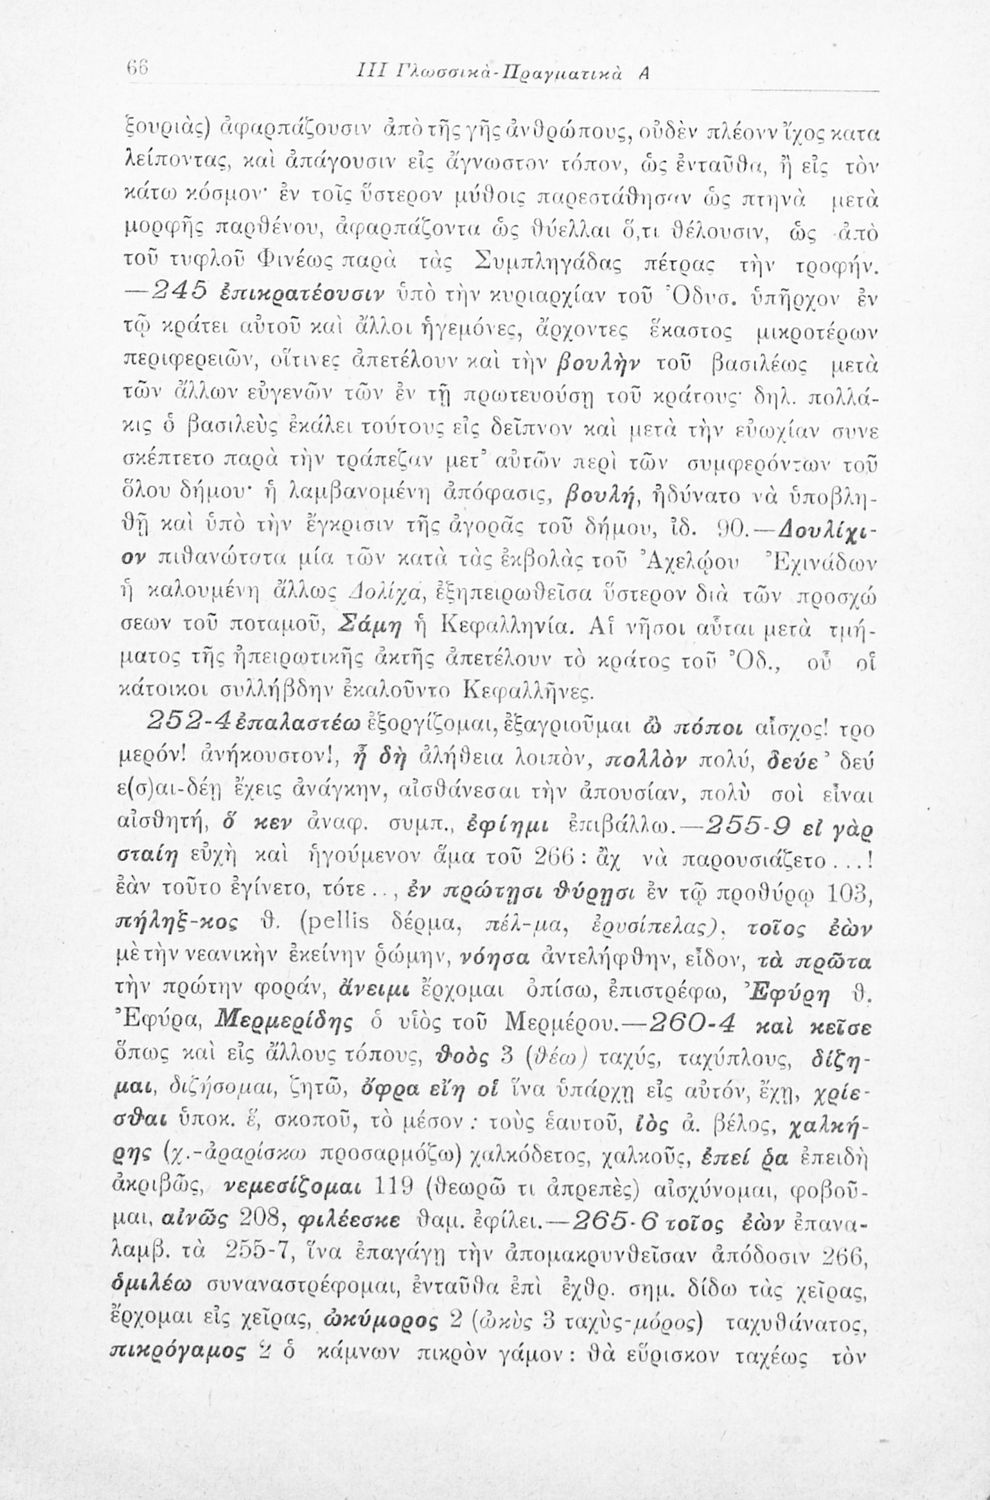 66
III Γλωσσικὰ-Πραγματικὰ Α
ξουριὰς) ἀφαρπάζουσιν ἀπὸ τῆς γῆς ἀνθρώπους, οὐδὲν πλέον ν ἴχος κατα
λείποντας, καὶ ἀπάγουσιν εἰς ἄγνωστον τόπον, ὡς ἐνταῦθα, ἢ εἰς τὸν
κάτω κόσμον· ἐν τοῖς ὕστερον μύθοις παρεστάθησαν ὡς πτηνὰ μετὰ
μορφῆς παρθένου, ἀφαρπάζοντα ὡς θύελλαι ὅ,τι θέλουσιν, ὡς ἀπὸ
τοῦ τυφλοῦ Φινέως παρὰ τὰς Συμπληγάδας πέτρας τὴν τροφήν.
—245 ἐπικρατέουσιν ὑπὸ τὴν κυριαρχίαν τοῦ Ὀδυσ. ὑπῆρχον ἐν
τῷ κράτει αὐτοῦ καὶ ἄλλοι ἡγεμόνες, ἄρχοντες ἕκαστος μικροτέρων
περιφερειῶν, οἵτινες ἀπετέλουν καὶ τὴν βουλὴν τοῦ βασιλέως μετὰ
τῶν ἄλλων εὐγενῶν τῶν ἐν τῇ πρωτευούσῃ τοῦ κράτους· δηλ. πολλά-
κις ὁ βασιλεὺς ἐκάλει τούτους εἰς δεῖπνον καὶ μετὰ τὴν εὐωχίαν συνε
σκέπτετο παρὰ τὴν τράπεζαν μετ' αὐτῶν περὶ τῶν συμφερόντων τοῦ
ὅλου δήμου· ἡ λαμβανομένη ἀπόφασις, βουλή, ἠδύνατο νὰ ὑποβλη-
θῇ καὶ ὑπὸ τὴν ἔγκρισιν τῆς ἀγορᾶς τοῦ δήμου, ἰδ. 90.—Δουλίχι-
ον πιθανώτατα μία τῶν κατὰ τὰς ἐκβολὰς τοῦ Ἀχελῴου Ἐχινάδων
ἡ καλουμένη ἄλλως Δολίχα, ἐξηπειρωθεῖσα ὕστερον διὰ τῶν προσχώ
σεων τοῦ ποταμοῦ, Σάμη ἡ Κεφαλληνία. Αἱ νῆσοι αὗται μετὰ τμή-
ματος τῆς ἠπειρωτικῆς ἀκτῆς ἀπετέλουν τὸ κράτος τοῦ Ὀδ., οὗ οἱ
κάτοικοι συλλήβδην ἐκαλοῦντο Κεφαλλῆνες.
252-4 ἐπαλαστέω ἐξοργίζομαι, ἐξαγριοῦμαι ὢ πόποι αἶσχος! τρο
μερόν! ἀνήκουστον!, ἦ δὴ ἀλήθεια λοιπὸν, πολλὸν πολύ, δεύε' δεύ
ε(σ)αι-δέῃ ἔχεις ἀνάγκην, αἰσθάνεσαι τὴν ἀπουσίαν, πολὺ σοὶ εἶναι
αἰσθητή, ὅ κεν ἀναφ. συμπ., ἐφίημι ἐπιβάλλω.—255-9 εἰ γὰρ
σταίη εὐχὴ καὶ ἡγούμενον ἅμα τοῦ 266 : ἂχ νὰ παρουσιάζετο...!
ἐὰν τοῦτο ἐγίνετο, τότε .., ἐν πρώτῃσι θύρῃσι ἐν τῷ προθύρῳ 103,
πήληξ-κος θ. (pellis δέρμα, πέλ-μα, ἐρυσίπελας), τοῖος ἐὼν
μὲ τὴν νεανικὴν ἐκείνην ῥώμην, νόησα ἀντελήφθην, εἶδον, τὰ πρῶτα
τὴν πρώτην φοράν, ἄνειμι ἔρχομαι ὀπίσω, ἐπιστρέφω, Ἐφύρη θ.
Ἐφύρα, Μερμερίδης ὁ υἱὸς τοῦ Μερμέρου.—260-4 καὶ κεῖσε
ὅπως καὶ εἰς ἄλλους τόπους, θοὸς 3 (θέω) ταχύς, ταχύπλους, δίζη-
μαι, διζήσομαι, ζητῶ, ὄφρα εἴη οἱ ἵνα ὑπάρχῃ εἰς αὐτόν, ἔχῃ, χρίε-
σθαι ὑποκ. ἕ, σκοποῦ, τὸ μέσον : τοὺς ἑαυτοῦ, ἰὸς ἀ. βέλος, χαλκή-
ρης (χ.-ἀραρίσκω προσαρμόζω) χαλκόδετος, χαλκοῦς, ἐπεί ῥα ἐπειδὴ
ἀκριβῶς, νεμεσίζομαι 119 (θεωρῶ τι ἀπρεπὲς) αἰσχύνομαι, φοβοῦ-
μαι, αἰνῶς 208, φιλέεσκε θαμ. ἐφίλει.—265-6 τοῖος ἐὼν ἐπανα-
λαμβ. τὰ 255-7, ἵνα ἐπαγάγῃ τὴν ἀπομακρυνθεῖσαν ἀπόδοσιν 266,
ὁμιλέω συναναστρέφομαι, ἐνταῦθα ἐπὶ ἐχθρ. σημ. δίδω τὰς χεῖρας,
ἔρχομαι εἰς χεῖρας, ὠκύμορος 2 (ὠκὺς 3 ταχὺς-μόρος) ταχυθάνατος,
πικρόγαμος 2 ὁ κάμνων πικρὸν γάμον : θὰ εὕρισκον ταχέως τὸν